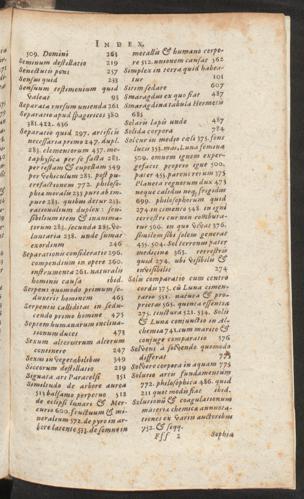 INDEX.
509. Domini 263
Seminum destillatio 219
Senectutis poni 257
Sensus quid 233
Sensuum testimonium quid
valeat 95
Separata rursum unienda 261
Separatio apud spagericos 380
381.422. 436
Separatio quid 297. artificii
necessaria primo 247. dupl.
283. elementorum 437. me-
taphysica per se facta 283.
per vehiculum 283. post pu-
trefactionem 772. philoso-
phica moralis 233 pura ab im-
pure 283. quibus detur 233.
rationalium duplex:
tarum 283. secunda 285. vo-
luntaria 238. unde sumat
exordium 246
Separationis consideratio 296.
compendium in opere 260.
instrumenta 261. naturalis
hominis causa ibid.
Serpens quomodo primum se-
duxerit hominem 465
Serpentis calliditas in sedu-
cendo primo homine 475
Septem humanarum inclina-
tionum duces 471
Sexum alterutrum alterum
continere 247
Sexus in vegetabilibus 349
Siccorum destillatio 219
Signata ars Paracelsi 351
Similitudo de arbore aurea
513 balsamo perpetuo 518
de eclipsi lunari & Mer-
curio 600. fructuum & mi-
neralium 572. de pyro in ar-
bore latente 533. de semine in
metallis & humano corpo-
re 512. unionem causae 362
Simplex in terra quid habea-
tur 101
Sitim sedare 607
Smaragdius ex quo fiat 487
Smaragdina tabula Hermetis
685
Solaris lapis unde 487
Solida corpora 784
Sol cur in medio caeli 375. sons
lucis 333. mas, Luna foemina
509. omnem ignem exper-
gefacit proprio igne 500.
pater 455. parens rerum 375
Planeta regnorum dux 475
neque calidus neq; frigidus
699. philosophorum quid
274 in cimento 548. in igne
terrestre cur non comburа-
tur 506. in quo vivat 376.
similem sibi solem generat
455. 504. Sol terrenus pater
medicina 363. terrestris
quid 274. ubi visibilis &
invisibilis 274
Solis comparatio cum centro
cordis 375. cũ Luna cimen-
ratio 551. natura & pro-
prietas 365. quinta essentia
275. tinctura 521. 534. Solis
& Lunæ conjunctio in Al-
chemia 741. cum marito &
conjuge comparatio 376
Solvens à solvendo quomodo
differat 775
Solvere corpora in aquam 775
Solutio artis fundamentum
772. philosophica 486. quid
211 quot modis fiat ibid.
Solutionis & coagulationum
materia chemica annota-
tiones ex variis auctoribus
752. & seqq.
Fff 2 Sophia